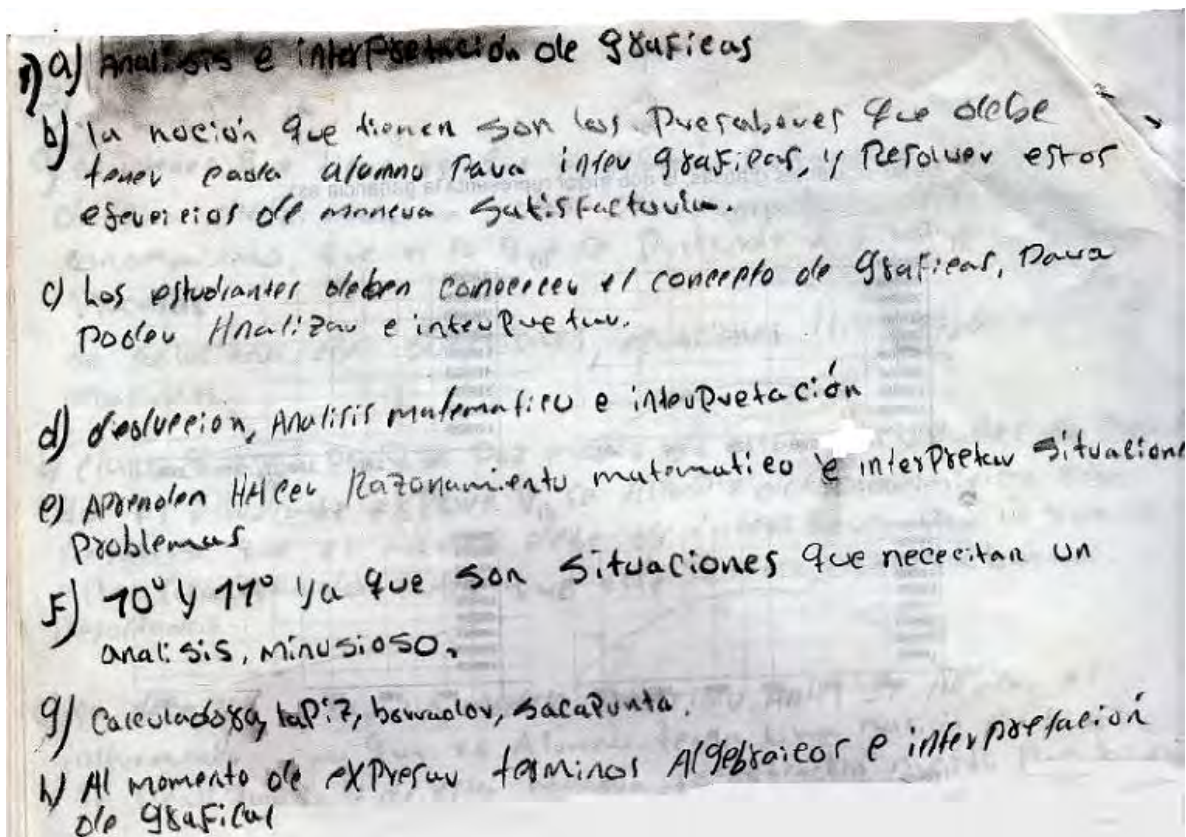 1) a) Analisis e interpretación de graficas
b) la noción que tienen son los Presaberes que debe
tener cada alumno Para inter graficas, y Resolver estos
ejercicios de manera satisfactoria.
c) Los estudiantes deben conocecer el concepto de graficas, Para
poder Analizar e interpretar.
d) deduccion, Analisis matematico e interpretación
e) Aprenden HAcer Razonamiento matematico e interpretar situacion
problemas
F) 10° y 11° ya que son situaciones que nececitan un
analisis, minusioso.
g) Calculadora, lapiz, borrador, sacapunta.
h) Al momento de expresar terminos Algebraicos e interpretación
de graficas